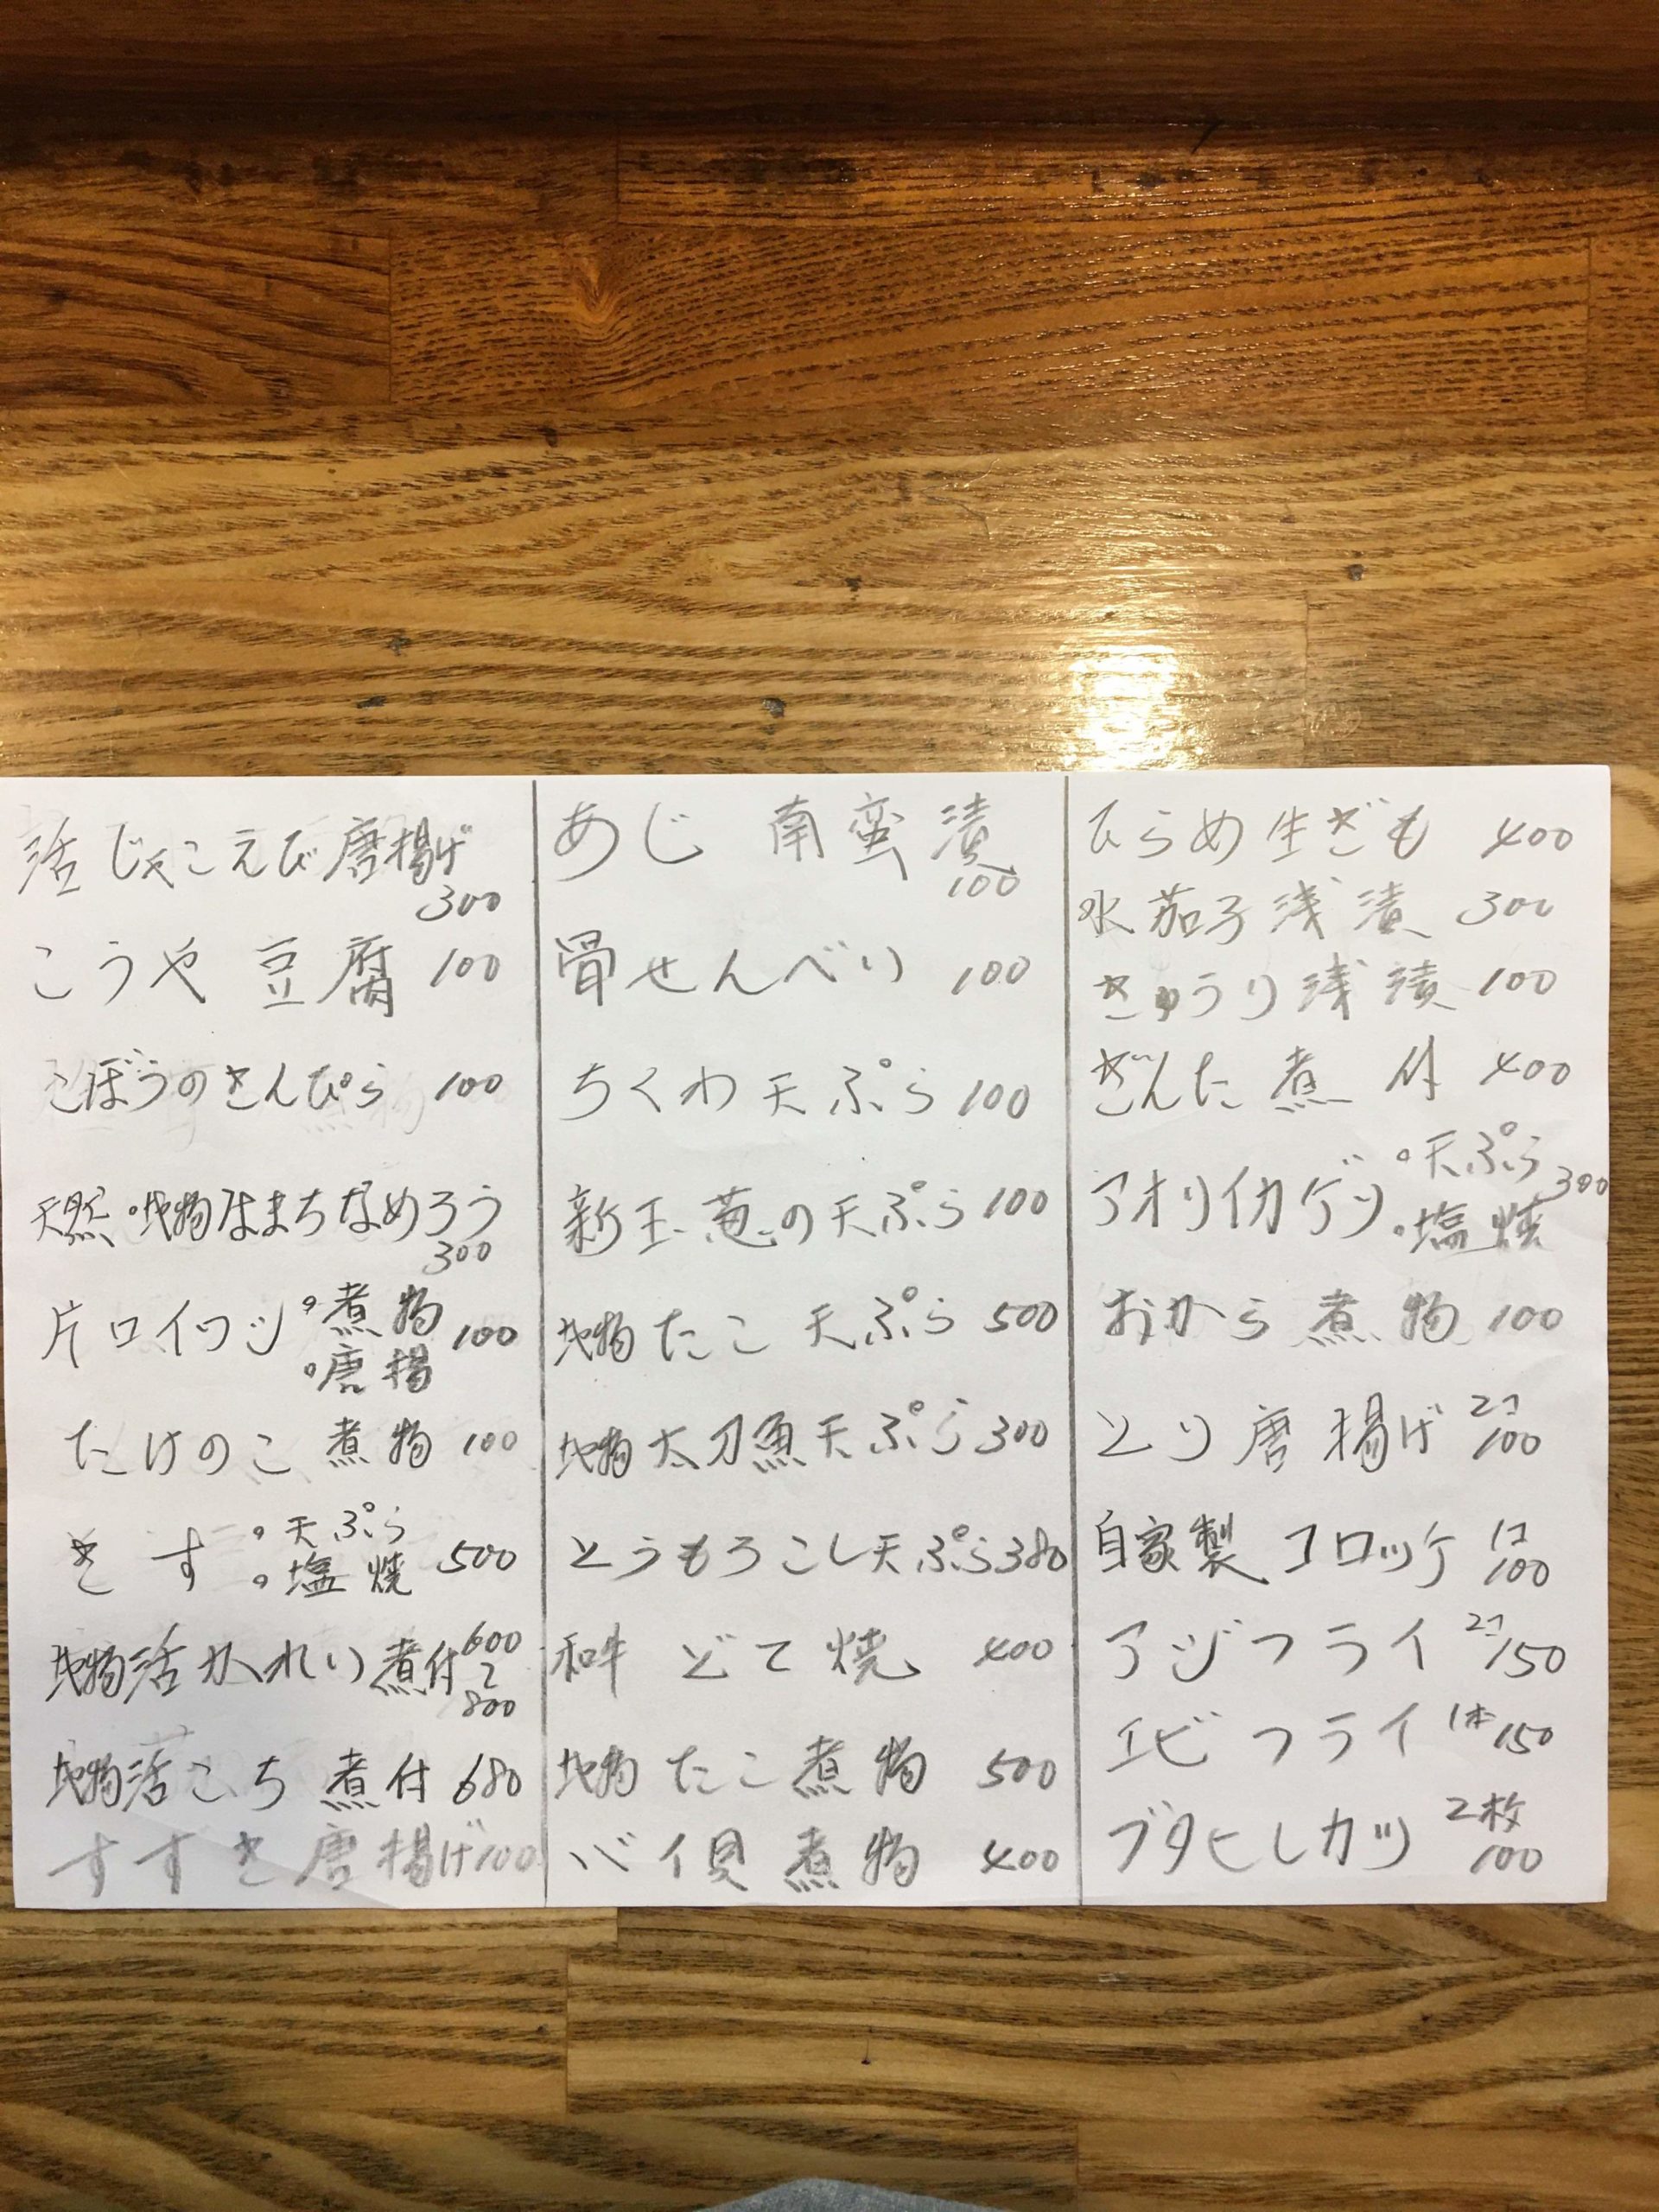 活じゃこえび唐揚げ
300
こうや豆腐 100
ごぼうのきんぴら 100
天然・地物はまちなめろう
300
片口イワシ ・煮物
・唐揚 100
たけのこ 煮物 100
きす ・天ぷら
・塩焼 500
地物活かれい煮付 600
〜
800
地物活こち 煮付 680
すずき唐揚げ 100
あじ 南蛮漬
100
骨せんべい 100
ちくわ天ぷら 100
新玉葱の天ぷら 100
地物たこ 天ぷら 500
地物太刀魚天ぷら 300
とうもろこし天ぷら 380
和牛 どて焼 400
地物たこ煮物 500
バイ貝煮物 400
ひらめ生ぎも 400
水茄子浅漬 300
きゅうり浅漬 100
ぎんた煮付 400
アオリイカゲソ ・天ぷら
・塩焼 300
おから煮物 100
とり唐揚げ 2コ
100
自家製コロッケ 1コ
100
アジフライ 2コ
150
エビフライ 1本 150
ブタヒレカツ 2枚
100